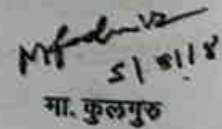 5/8/18
मा. कुलगुरु